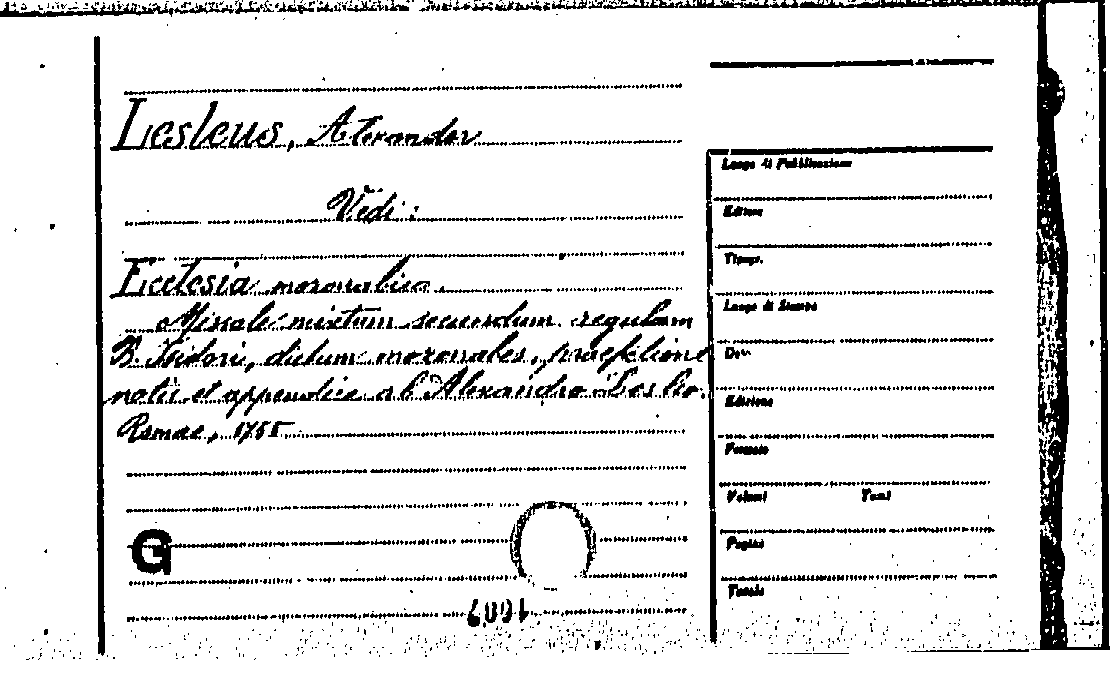 Lesleus, Alexander
Vedi:
Ecclesia mozarabica.
Missale mixtum secundum regulam
B. Isidori, dictum mozarabes, praefatione
notis et appendice ab Alexandro Leslio.
Romae, 1755
G
Luogo di Pubblicazione
Editore
Tipogr.
Luogo di Stampa
Data
Edizione
Formato
Volumi Tomi
Pagine
Tavole